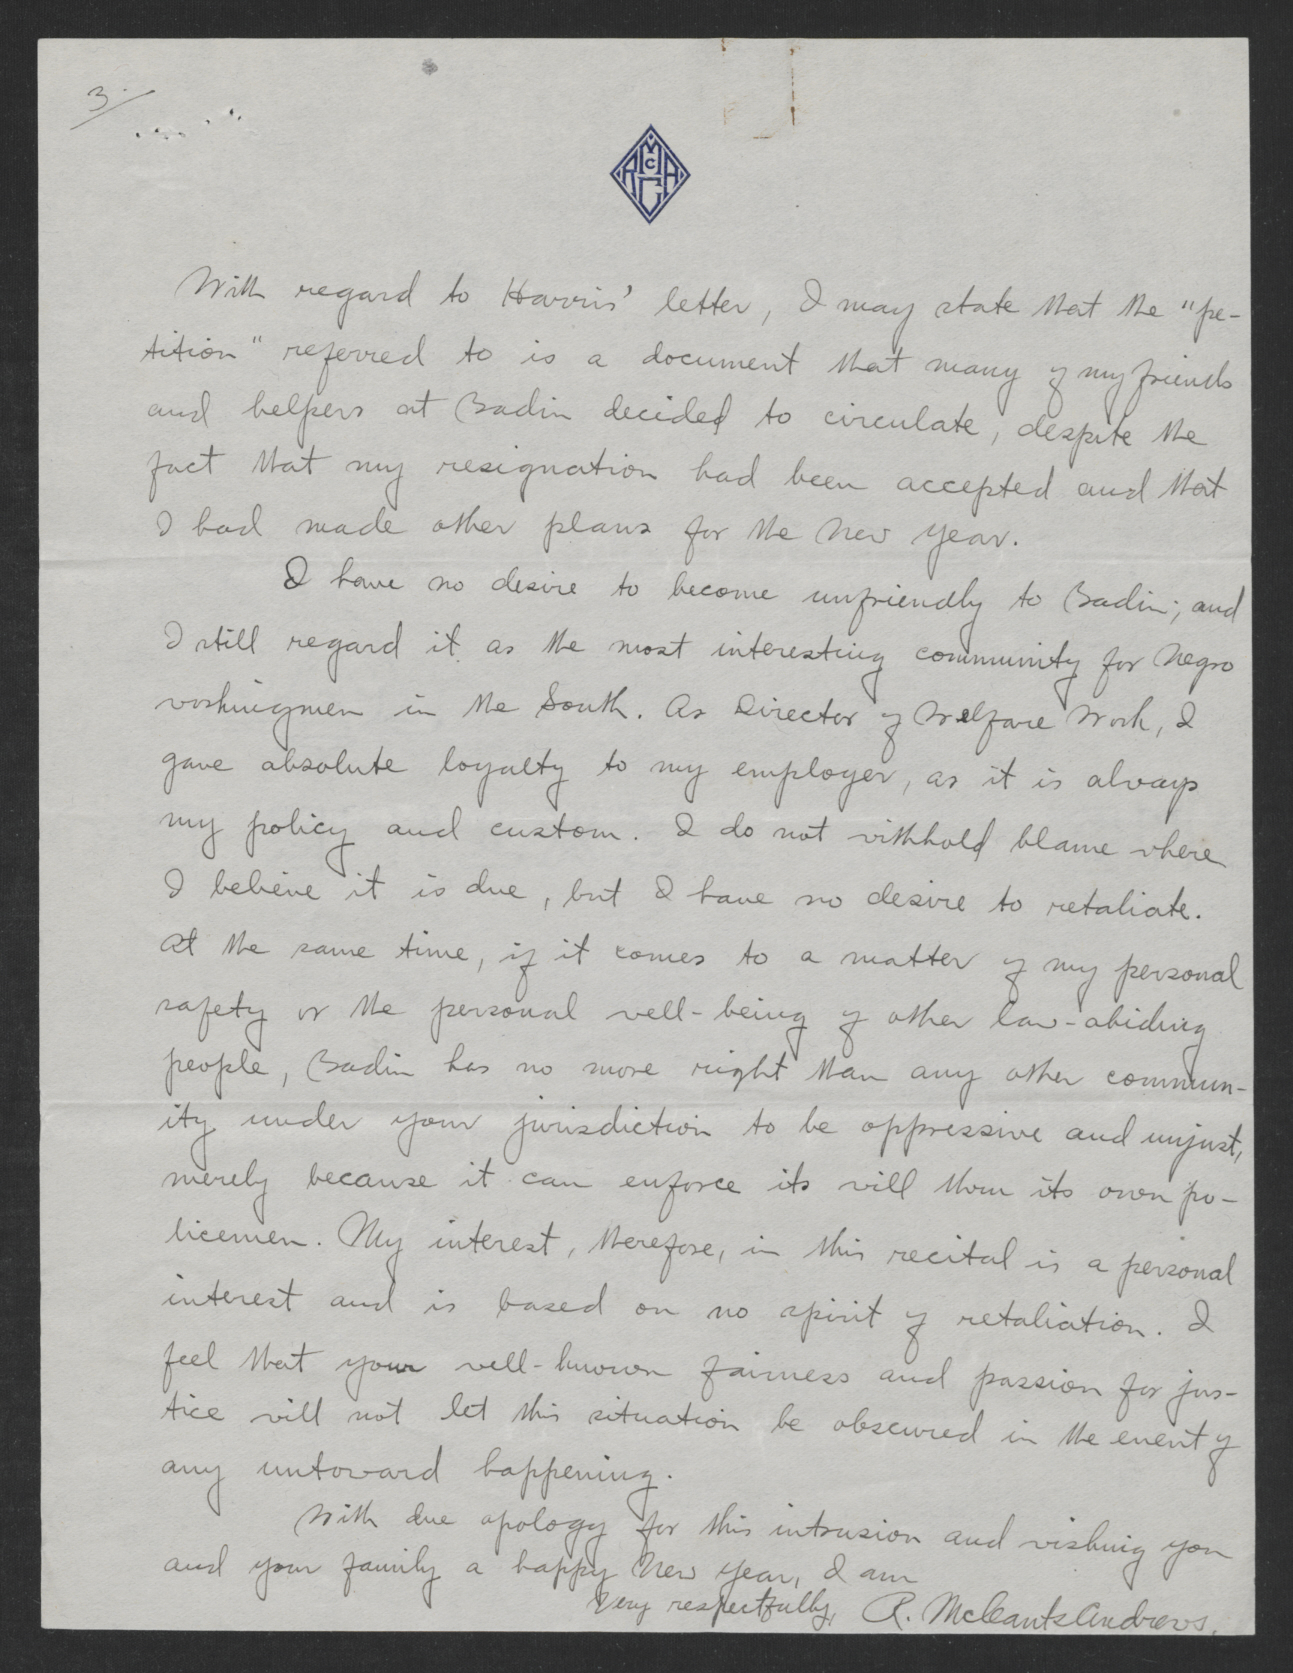 3.
With regard to Harris' letter, I may state that the "pe-
tition" referred to is a document that many of my friends
and helpers at Badin decided to circulate, despite the
fact that my resignation had been accepted and that
I had made other plans for the New Year.
I have no desire to become unfriendly to Badin; and
I still regard it as the most interesting community for Negro
workingmen in the South. As Director of Welfare Work, I
gave absolute loyalty to my employer, as it is always
my policy and custom. I do not withhold blame where
I believe it is due, but I have no desire to retaliate.
At the same time, if it comes to a matter of my personal
safety or the personal well-being of other law-abiding
people, Badin has no more right than any other commun-
ity under your jurisdiction to be oppressive and unjust,
merely because it can enforce its will thru its own po-
licemen. My interest, therefore, in this recital is a personal
interest and is based on no spirit of retaliation. I
feel that your well-known fairness and passion for jus-
tice will not let this situation be obscured in the event of
any untoward happening.
With due apology for this intrusion and wishing you
and your family a happy New Year, I am
Very respectfully, R. McCants Andrews.